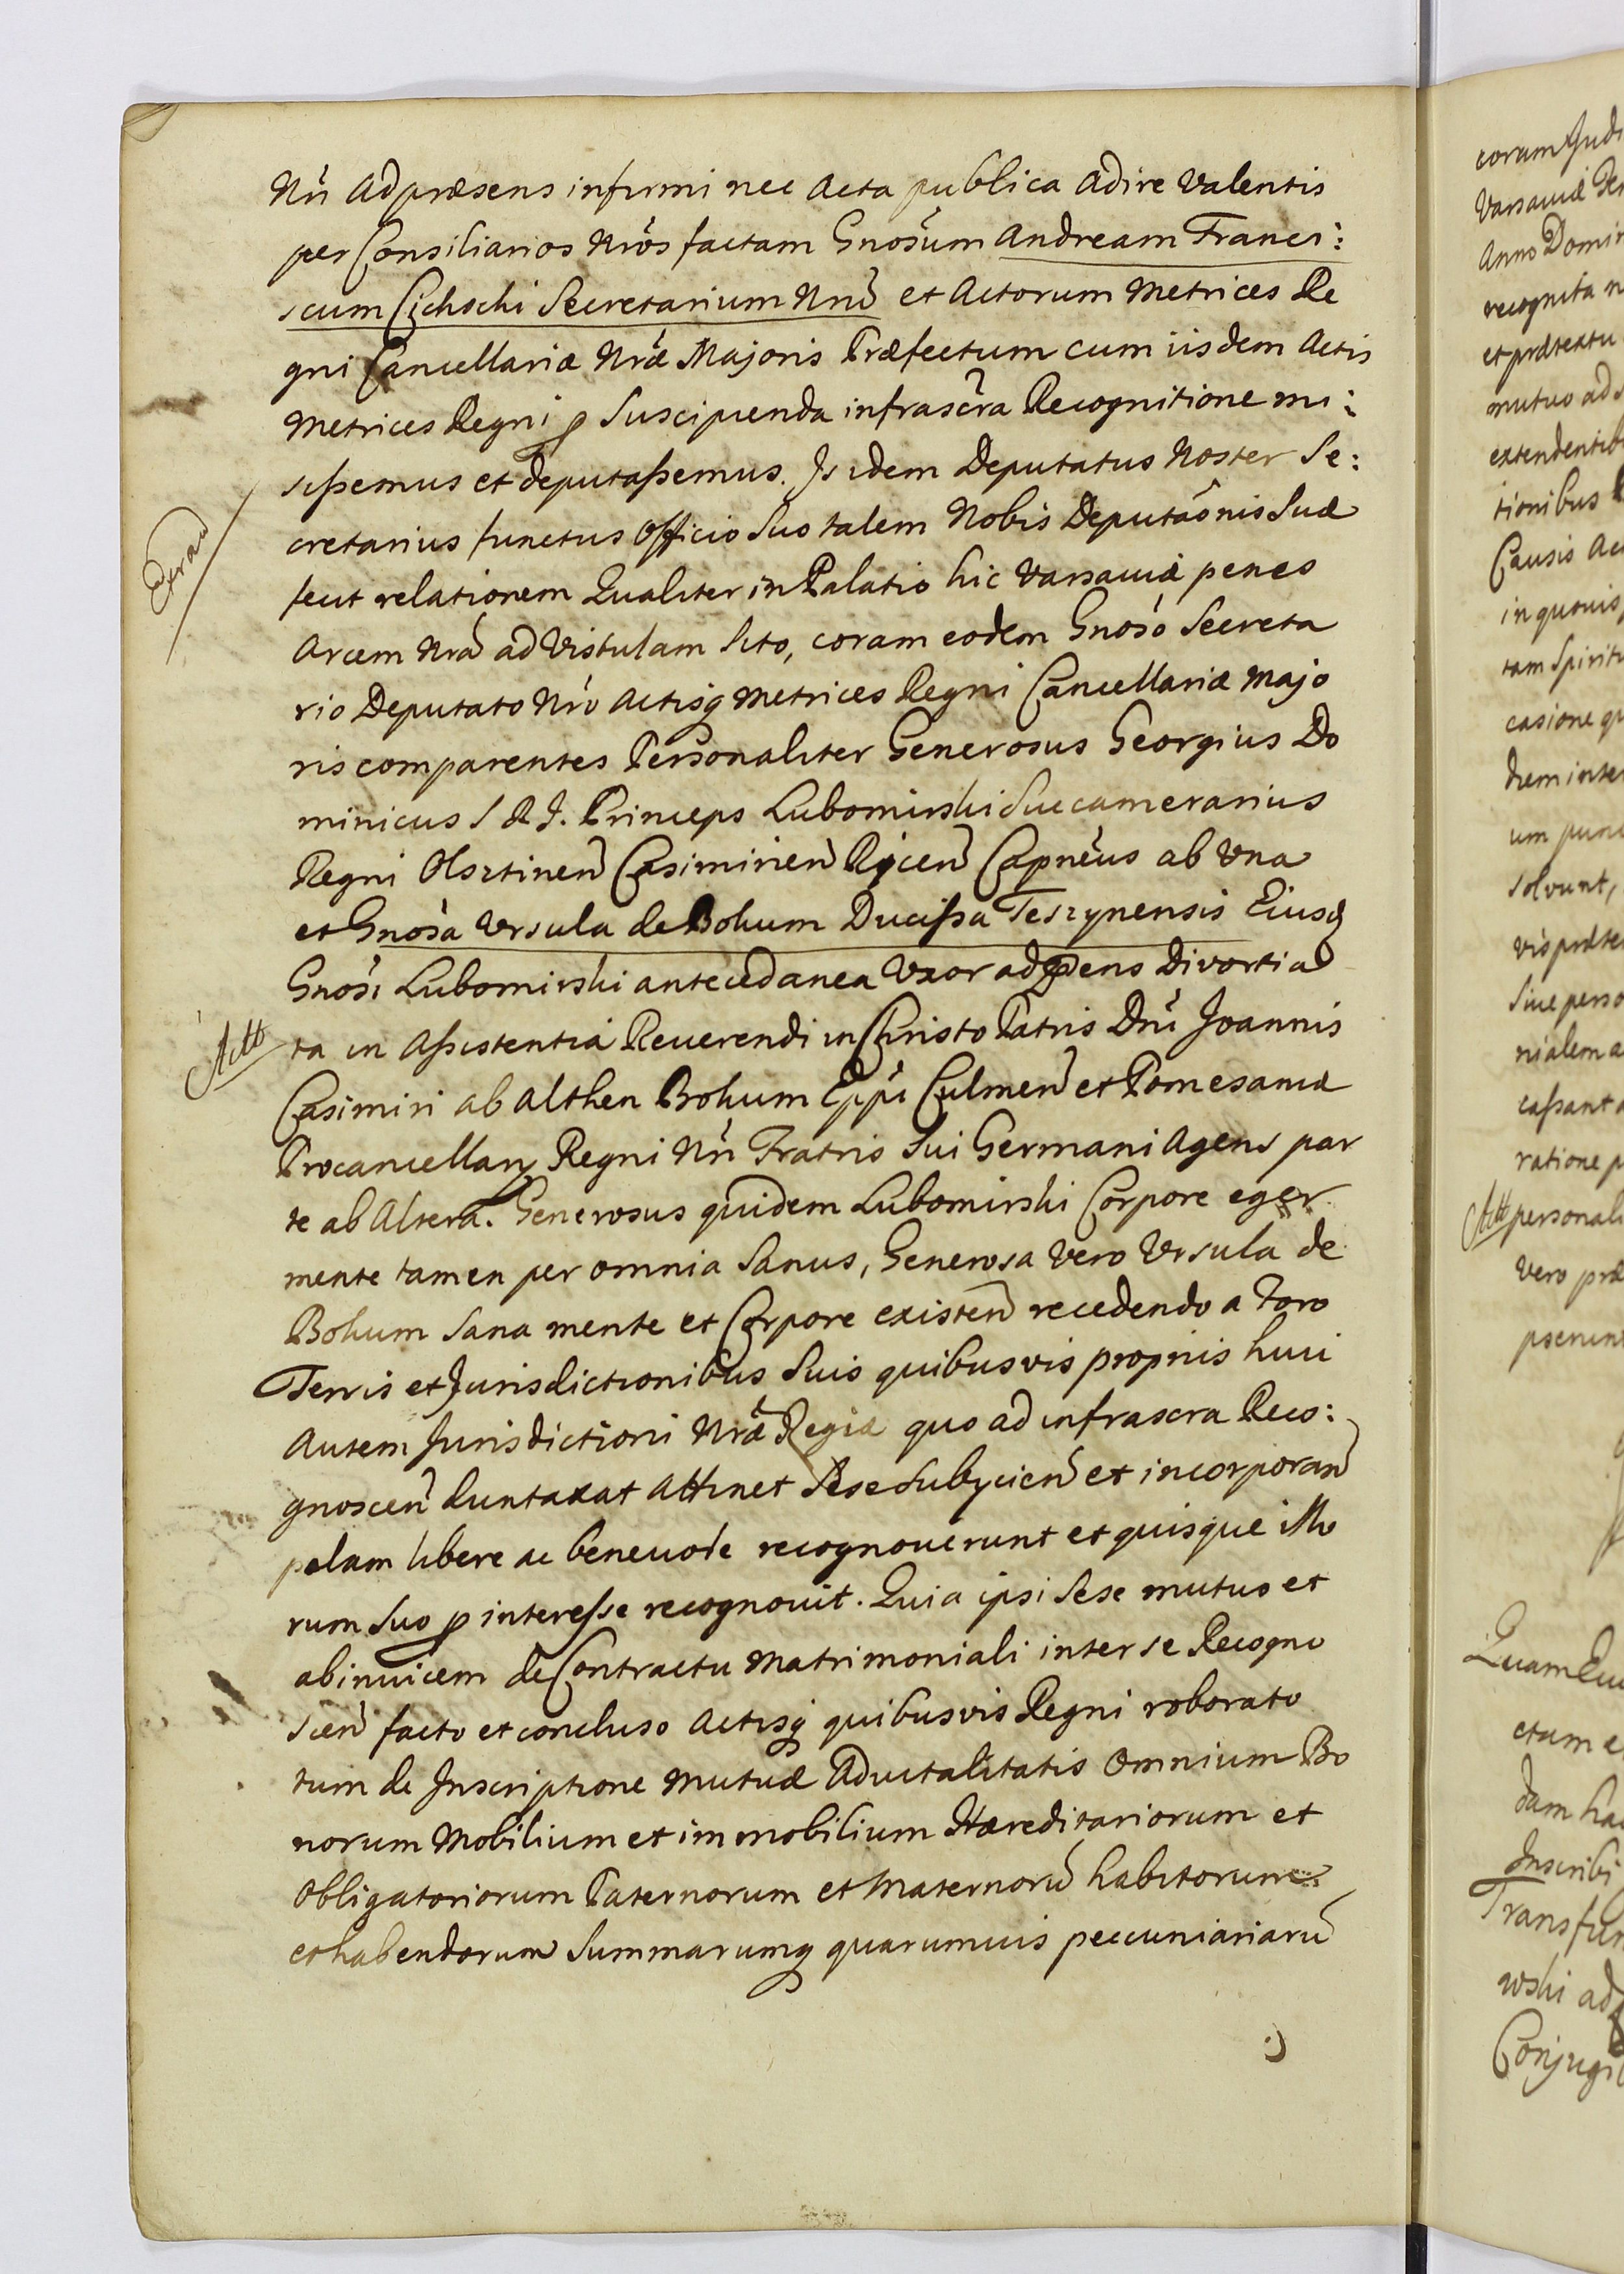 Nri ad præsens infirmi nec Acta publica adire valentis
per Consiliarios Nros factam Gnosum Andream Franci:
scum Cichocki Secretarium Nrm et Actorum Metrices Re
gni Cancellariæ Nræ Majoris Præfectum cum iisdem Actis
Metrices Regni p Suscipienda infrascra Recognitione mi:
sißemus et deputaßemus. Is idem Deputatus Noster Se:
cretarius functus Officio Suo talem Nobis Deputaonis Suæ
fecit relationem Qualiter in Palatio hic Varsaviæ penes
Arcem Nra ad Vistulam Sito, coram eodem Gnoso Secreta
rio Deputato Nro Actisq Metrices Regni Cancellariæ Majo
ris comparentes Personaliter Generosus Georgius Do
minicus S R I. Princeps Lubomirski Succamerarius
Regni Olsztinen Casimirien Rycen Capneus ab Una
et Gnosa Ursula de Bokum Ducißa Teszynensis Eiusd
Gnosi Lubomirski antecedanea Uxor ad psens Divortia
Actt
ta in Aßistentia Reuerendi in Christo Patris Dni Joannis
Casimiri ab Althen Bokum Eppi Culmen et Pomesaniæ
Procancellarij Regni Nri Fratris Sui Germani Agens par
te ab Altera. Generosus quidem Lubomirski Corpore eger
mente tamen per omnia Sanus, Generosa vero Ursula de
Bokum Sana mente et Corpore existen recedendo a Foro
Terris et Jurisdictionibus Suis quibusvis propriis huic
Autem Jurisdictioni Nræ Regiæ quo ad infrascra Reco:
gnoscen duntaxat Attinet Sese Subijcien et incorporan
palam libere ac beneuole recognouerunt et quisque illo
rum Suo p intereße recognouit. Quia ipsi Sese mutuo et
abinuicem de Contractu Matrimoniali inter se Recogno
scen facto et concluso Actisq quibusvis Regni roborato
tum de Inscriptione Mutuæ Aduitalitatis Omnium Bo
norum Mobilium et immobilium Hæreditariorum et
Obligatoriorum Paternorum et Maternoru habitorum
et habendorum Summarumq quarumuis pecuniariaru
coram
Varsauiæ
Anno Domin
recognita
et prætextu
mutuo ad
extendentib
tionibus
Causis
in quouis
tam Spirit
casione
solvunt,
Siue perso
caßant
ratione
Actt personali
vero præ
Quam
etiam
dam
Inscribi
Transfun
wski ad
Conjugi